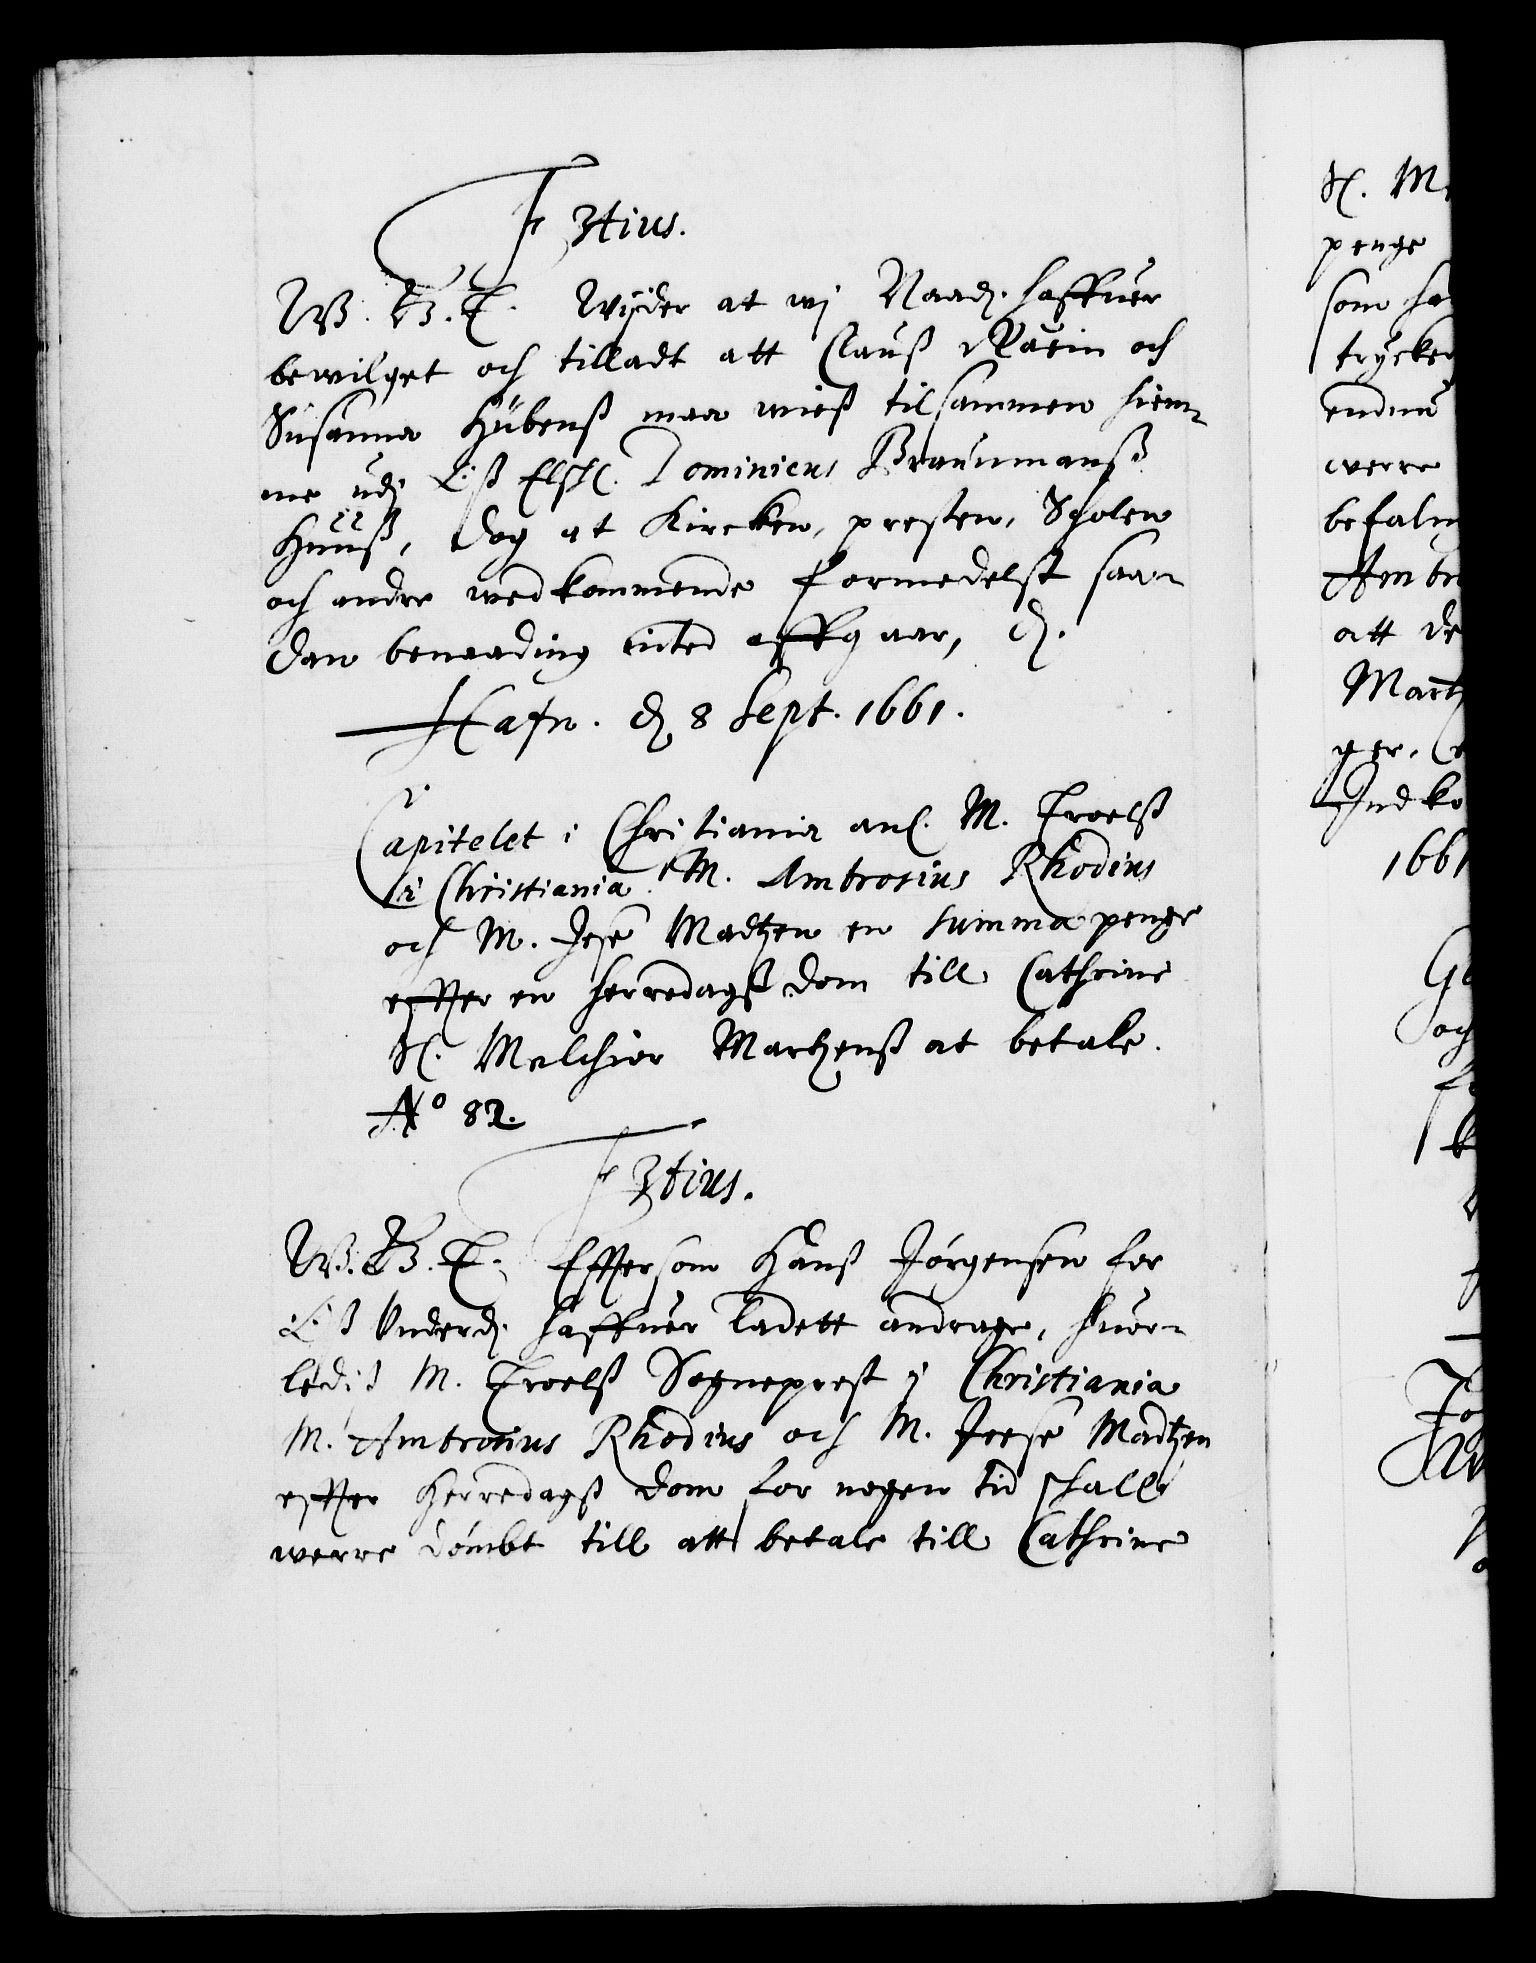 F 3tius.
W. G. T. Wijder at wj Naad. haffuer
bewilget och tilladt att Clauß Ravin och
Susanna Hübenß maa wieß tilsammen hiem-
me udj Oß Elskl. Dominicus Braunmanß
Huuß, dog at Kircken, presten, Scholen
och andre wedkommende formedelst saa-
dan benaading inted affgaar, d.
Hafn. d 8 Sept. 1661.
Capitelet i Christiania anl. M. Troelß
i Christiania. M. Ambrosius Rhodius
och M. Jese Madtzen en summa penge
effter en herredagß dom till Cathrine
Sl. Melchior Martzenß at betale.
No 82.
F 3tius.
W. G. T. Efftersom Hanß Jørgensen for
Oß Underd. haffuer ladett andrage, huor-
ledis M. Troelß Sogneprest j Christiania
M. Ambrosius Rhodius och M. Jesse Madtzen
effter Herredagß dom for nogen tid schall
werre dømbt till att betale till Cathrine
Sl. M
penge
som ha
trycke
endnu
werre
befaln
Ambr
att de
Mart
ger. 
Indko
1661